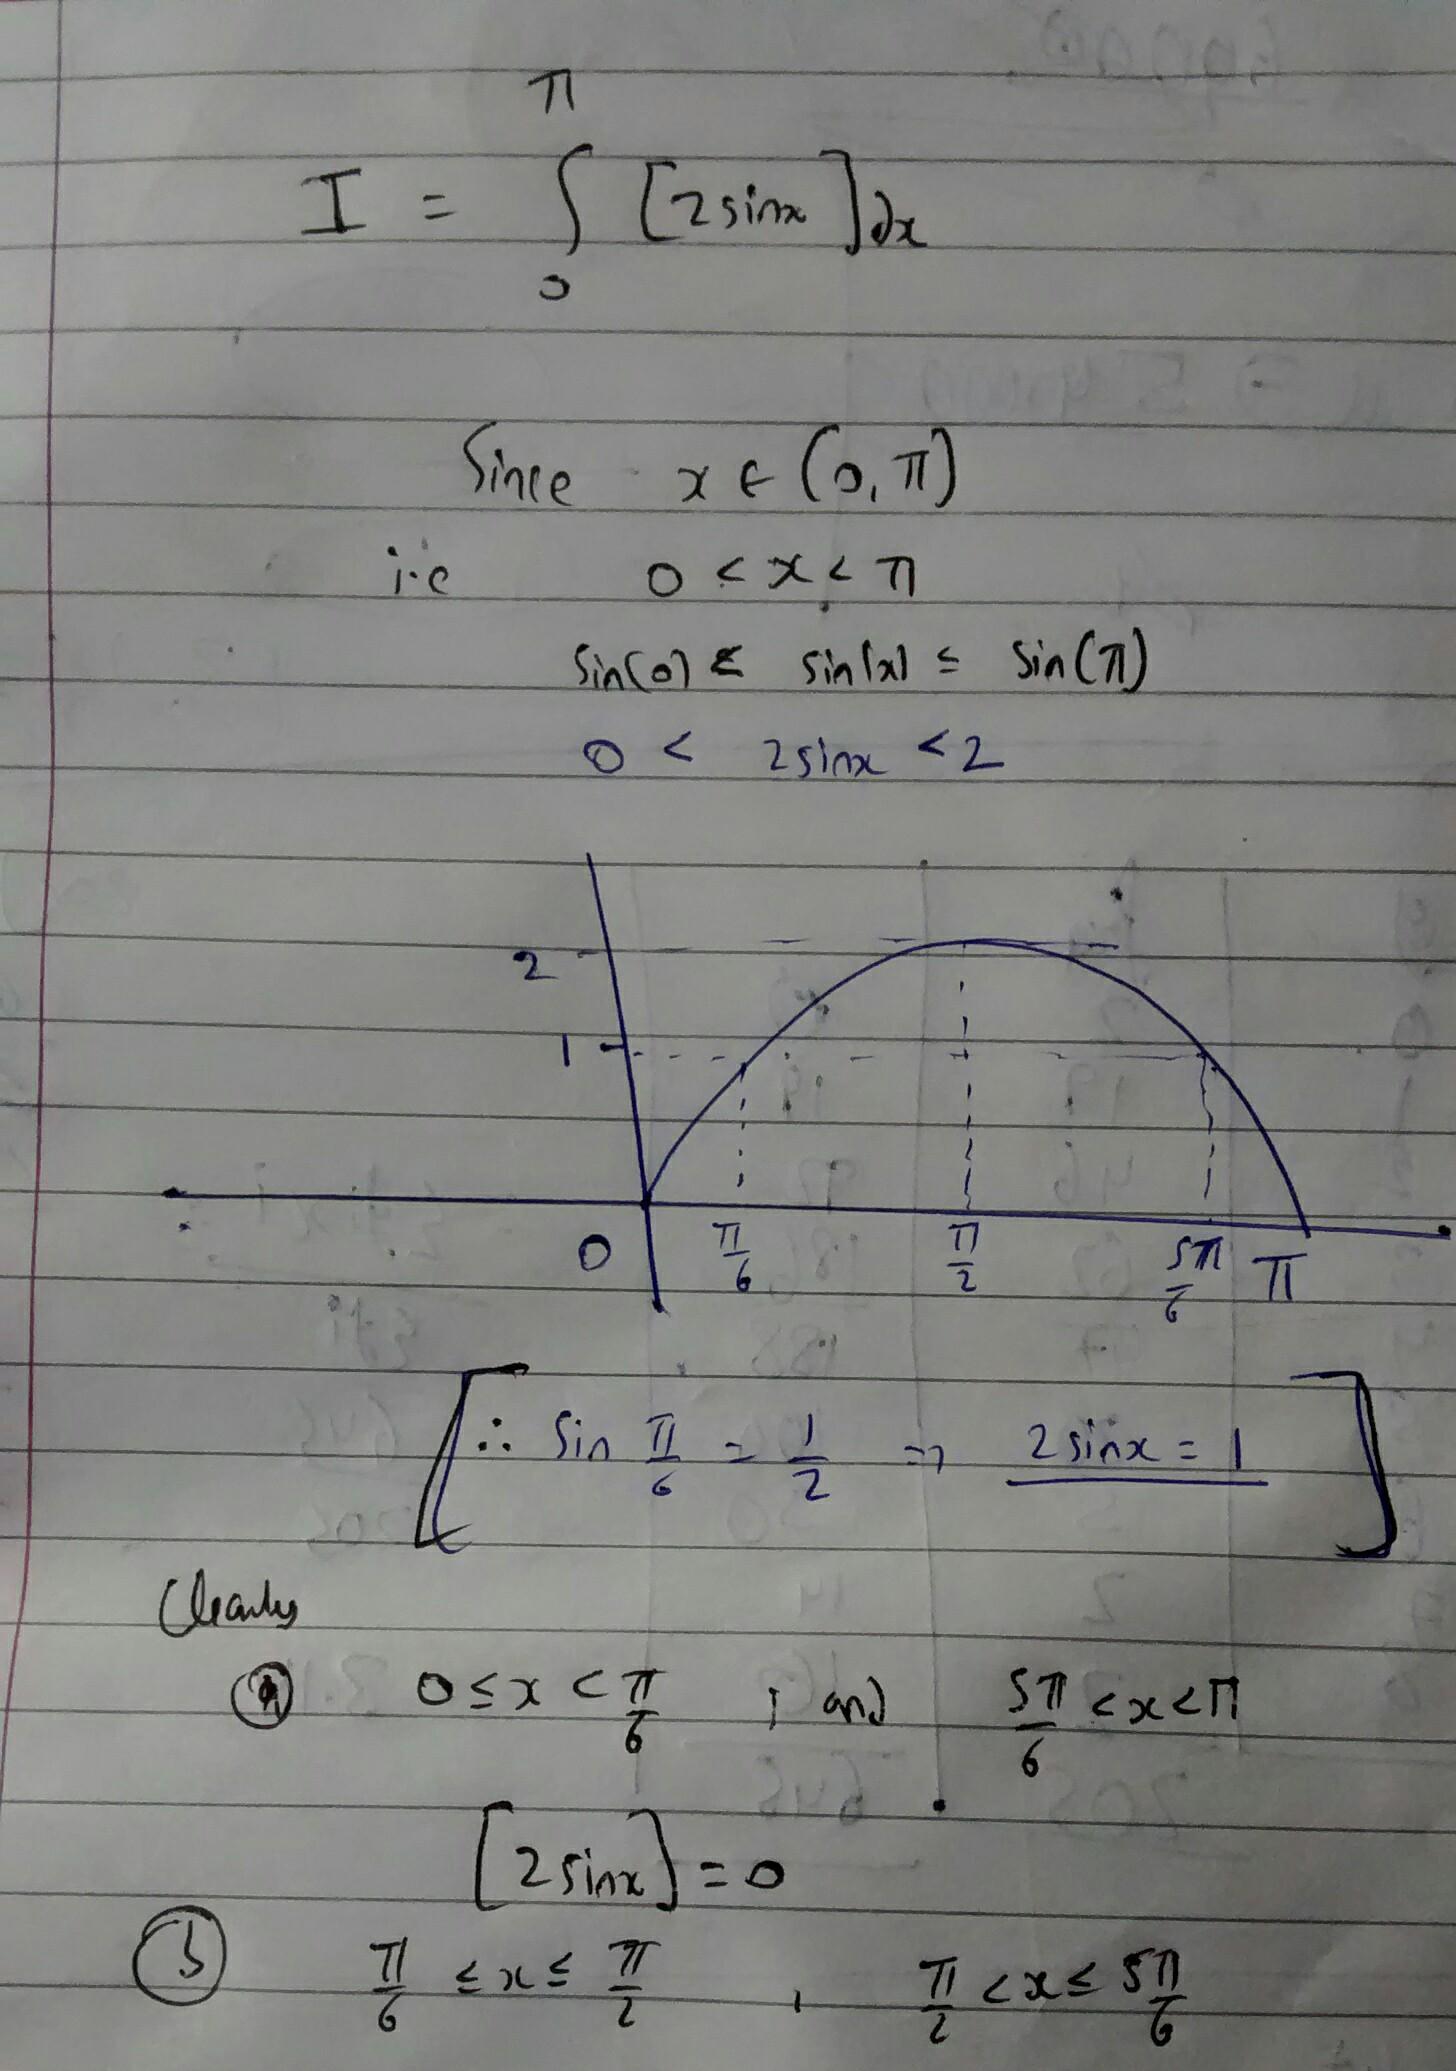 π
I = ∫ [2sinx]dx
0
Since x ∈ (0, π)
i.e 0 < x < π
sin(0) ≤ sin(x) ≤ sin(π)
0 < 2sinx < 2
2
1
0 π/6 π/2 5π/6 π
[∴ sin π/6 = 1/2 ⇒ 2sinx = 1]
Clearly
a 0 ≤ x < π/6 ; and 5π/6 < x < π
[2sinx] = 0
b π/6 ≤ x ≤ π/2 , π/2 < x ≤ 5π/6